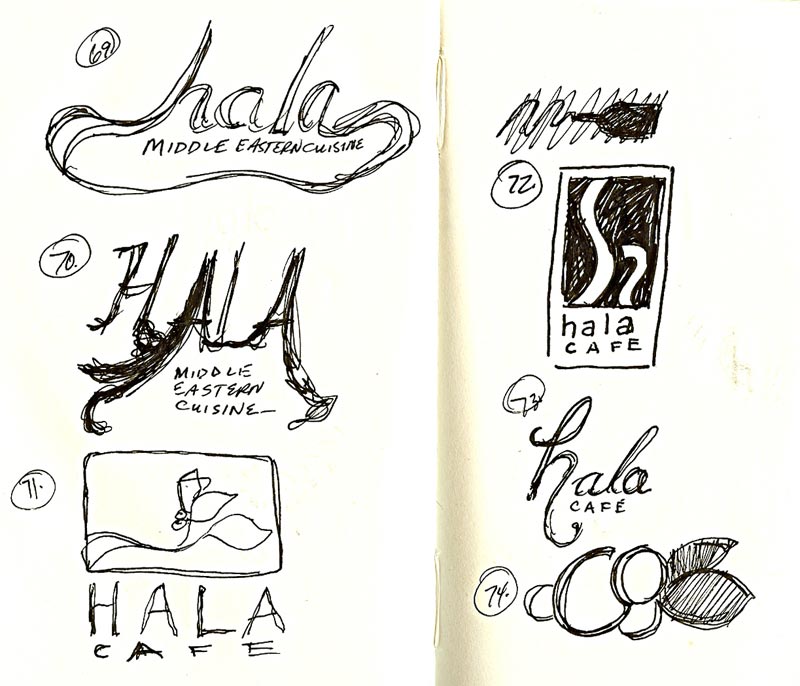 69.
hala
MIDDLE EASTERN CUISINE
70.
HALA
MIDDLE
EASTERN
CUISINE
71.
HALA
CAFE
72.
hala
CAFE
73.
hala
CAFÉ
74.